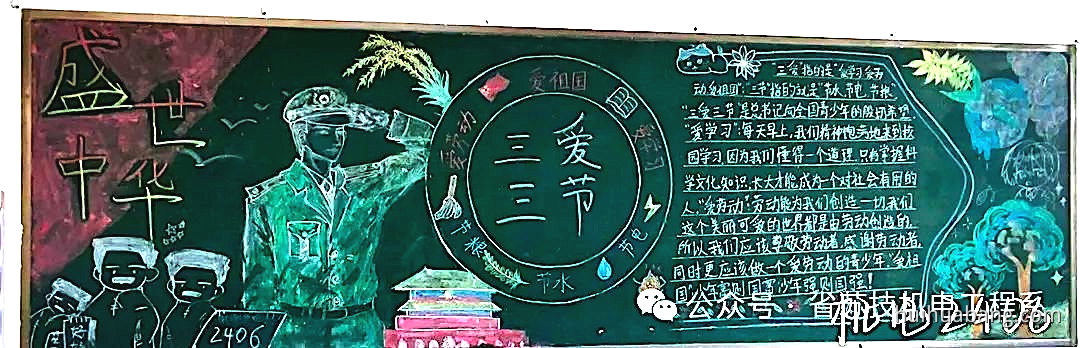 盛世
中华
2406
爱祖国
爱学习
节电
节水
节粮
爱劳动
三爱
三节
"三爱"指的是"爱学习爱劳
动爱祖国";"三节"指的就是"节水、节电、节粮"
"三爱三节"是总书记向全国青少年的殷切希望
"爱学习":每天早上,我们精神饱满地来到校
园学习因为我们懂得一个道理,只有掌握科
学文化知识,长大才能成为一个对社会有用的
人,"爱劳动":劳动能为我们创造一切我们
这个美丽可爱的世界都是由劳动创造的,
所以我们应该尊敬劳动者,感谢劳动者,
同时更应该做一个爱劳动的青少年,"爱祖
国"少年富则国富少年强则国强!
公众号
机电2406